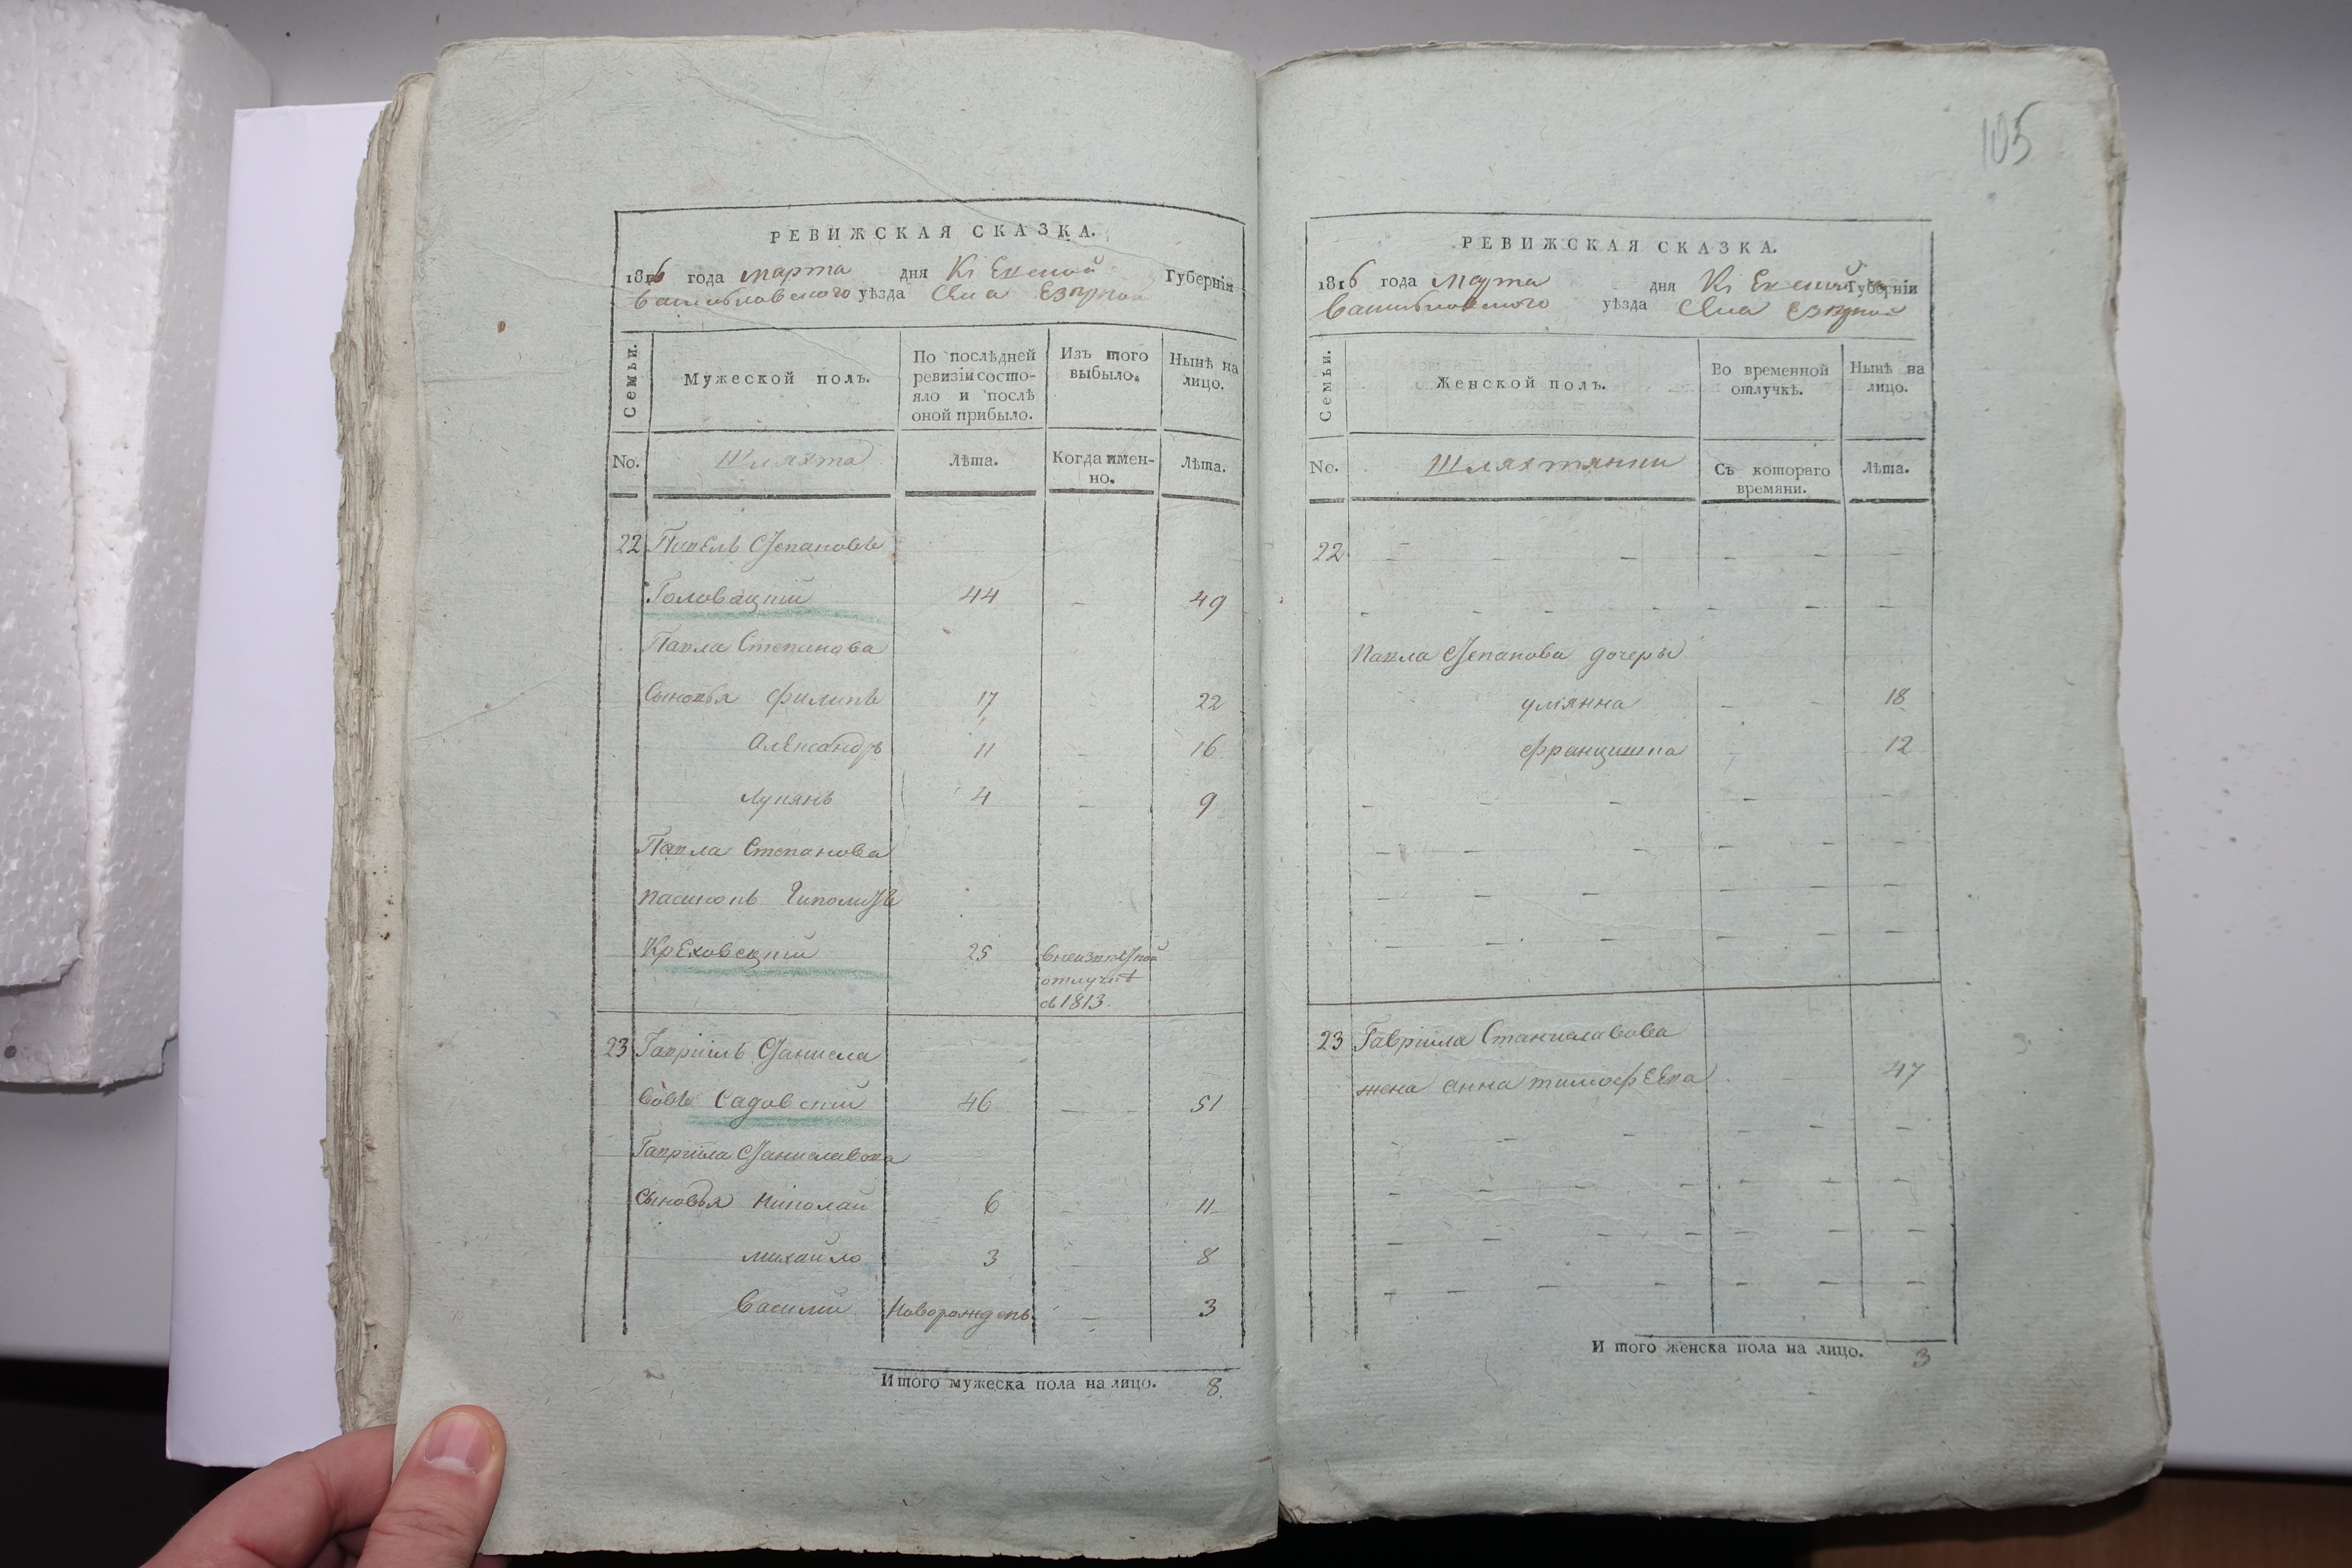 105
РЕВИЖСКАЯ СКАЗКА.
1816 года марта дня Кіевской Губерніи
Васильковского уѣзда Села Езерной
Семьи.
Мужеской полъ.
По послѣдней ревизіи состо-
яло и послѣ
оной прибыло.
Изъ того
выбыло.
Нынѣ на
лицо.
No.
Шляхта
Лѣта.
Когда имен-
но.
Лѣта.
22 Павелъ Степановъ
Головацкій 44 - 49
Павла Степанова
Сыновья Филипъ 17 22
Александръ 11 - 16
Лукянъ 4 - 9
Павла Степанова
пасинокъ Гиполитъ
Креховецкій 25 внеизвестной
отлучкѣ
съ 1813.
23 Гавріилъ Станисла
вовъ Садовскій 46 - - 51
Гавріила Станиславова
Сыновья Николай 6 - 11
Михайло 3 - 8
Василій Новорожденъ - 3
Итого мужеска пола на лицо. 8.
РЕВИЖСКАЯ СКАЗКА.
1816 года Марта дня Кіевской Губерніи
Васильковского уѣзда Села Езерной
Семьи.
Женской полъ.
Во временной
отлучкѣ.
Нынѣ на
лицо.
No.
Шляхтянки
Съ котораго
времяни.
Лѣта.
22
Павла Степанова дочеры
Улiянна - - 18
Францишка - 12
23 Гавріила Станиславова
жена Анна тимофЕева 47
Итого женска пола на лицо. 3